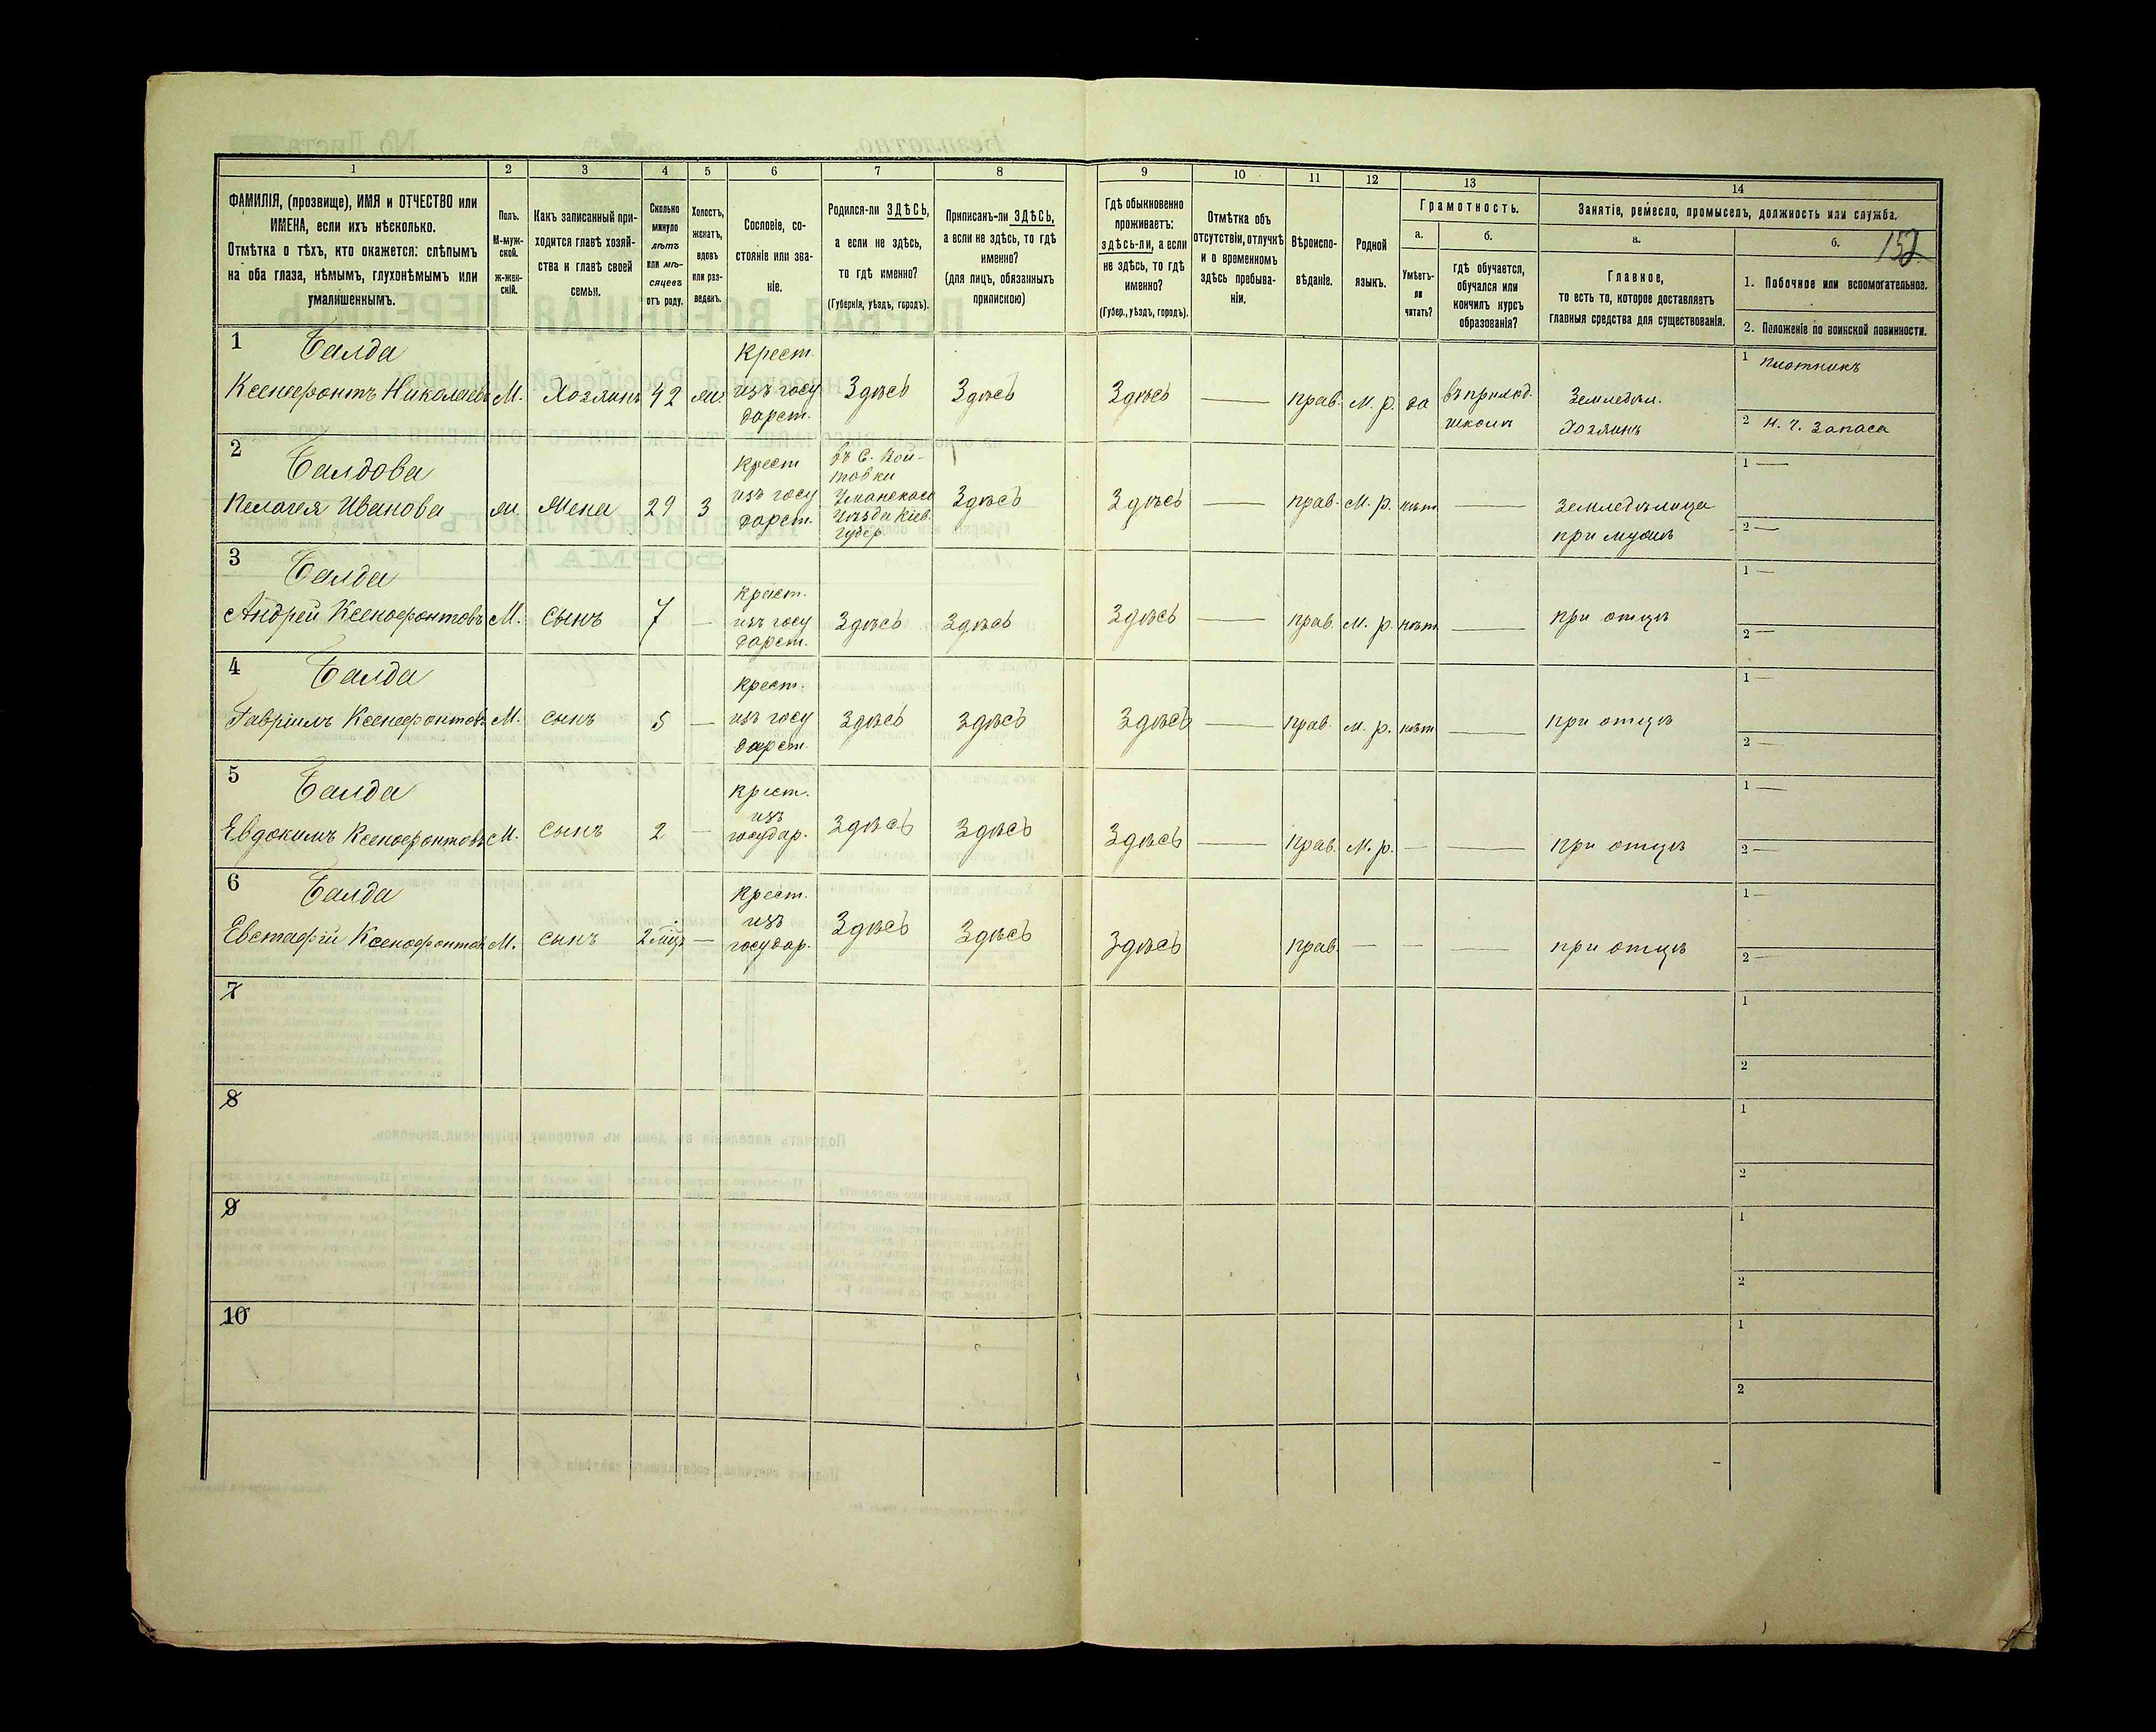 1 2 3 4 5 6 7 8 9 10 11 12 13 14
ФАМИЛІЯ, (прозвище), ИМЯ и ОТЧЕСТВО или
ИМЕНА, если ихъ нѣсколько.
Отмѣтка о тѣхъ, кто окажется: слѣпымъ
на оба глаза, нѣмымъ, глухонѣмымъ или
умалишеннымъ.
Полъ.
М-муж-
ской.
ж-жен-
скій.
Какъ записанный при-
ходится главѣ хозяй-
ства и главѣ своей
семьи.
Сколько
минуло
лѣтъ
или мѣ-
сяцевъ
отъ роду.
Холостъ,
женатъ,
вдовъ
или раз-
веденъ.
Сословіе, со-
стояніе или зва-
ніе.
Родился-ли ЗДѢСЬ,
а если не здѣсь,
то гдѣ именно?
(Губернія, уѣздъ, городъ).
Приписанъ-ли ЗДѢСЬ,
а если не здѣсь, то гдѣ
именно?
(для лицъ, обязанныхъ
припискою)
Гдѣ обыкновенно
проживаетъ:
здѣсь-ли, а если
не здѣсь, то гдѣ
именно?
(Губер., уѣздъ, городъ).
Отмѣтка объ
отсутствіи, отлучкѣ
и о временномъ
здѣсь пребыва-
ніи.
Вѣроиспо-
вѣданіе.
Родной
языкъ.
Грамотность.
а.
Умѣетъ-
ли
читать?
б.
гдѣ обучается,
обучался или
кончилъ курсъ
образованія?
Занятіе, ремесло, промыселъ, должность или служба.
а.
Главное,
то есть то, которое доставляетъ
главныя средства для существованія.
б.
152
1. Побочное или вспомогательное.
2. Положеніе по воинской повинности.
1 Балда
Ксенофонтъ Николаевъ М. Хозяинъ 42 ж. Крест.
изъ госу
дарст. Здѣсь Здѣсь Здѣсь — прав. М. р. да въ приход.
школѣ Земледѣл.
Хозяинъ 1 Плотникъ
2 Н. Ч. Запаса
2 Балдова
Пелагея Иванова ж. Жена 29 3 Крест
изъ госу
дарст. въ С. Вой-
товки
Уманскаго
Уѣзда Кіев.
Губер. Здѣсь Здѣсь — прав. М. р. нѣт — Земледѣлица
при мужѣ 1 —
2 —
3 Балда
Андрей Ксенофонтовъ М. сынъ 7 — Крест.
изъ госу
дарст. Здѣсь Здѣсь Здѣсь — прав. М. р. нѣт — при отцѣ 1 —
2 —
4 Балда
Гавріилъ Ксенофонтовъ М. сынъ 5 — Крест.
изъ госу
дарст. Здѣсь Здѣсь Здѣсь — прав. М. р. нѣт — при отцѣ 1 —
2 —
5 Балда
Евдокимъ Ксенофонтовъ М. сынъ 2 — Крест.
изъ
государ. Здѣсь Здѣсь Здѣсь — Прав. М. р. — — при отцѣ 1 —
2 —
6 Балда
Евстафій Ксенофонтов М. сынъ 2 мѣц. — Крест.
изъ
государ. Здѣсь Здѣсь Здѣсь прав. — — — при отцѣ 1 —
2 —
7 1
2
8 1
2
9 1
2
10 1
2